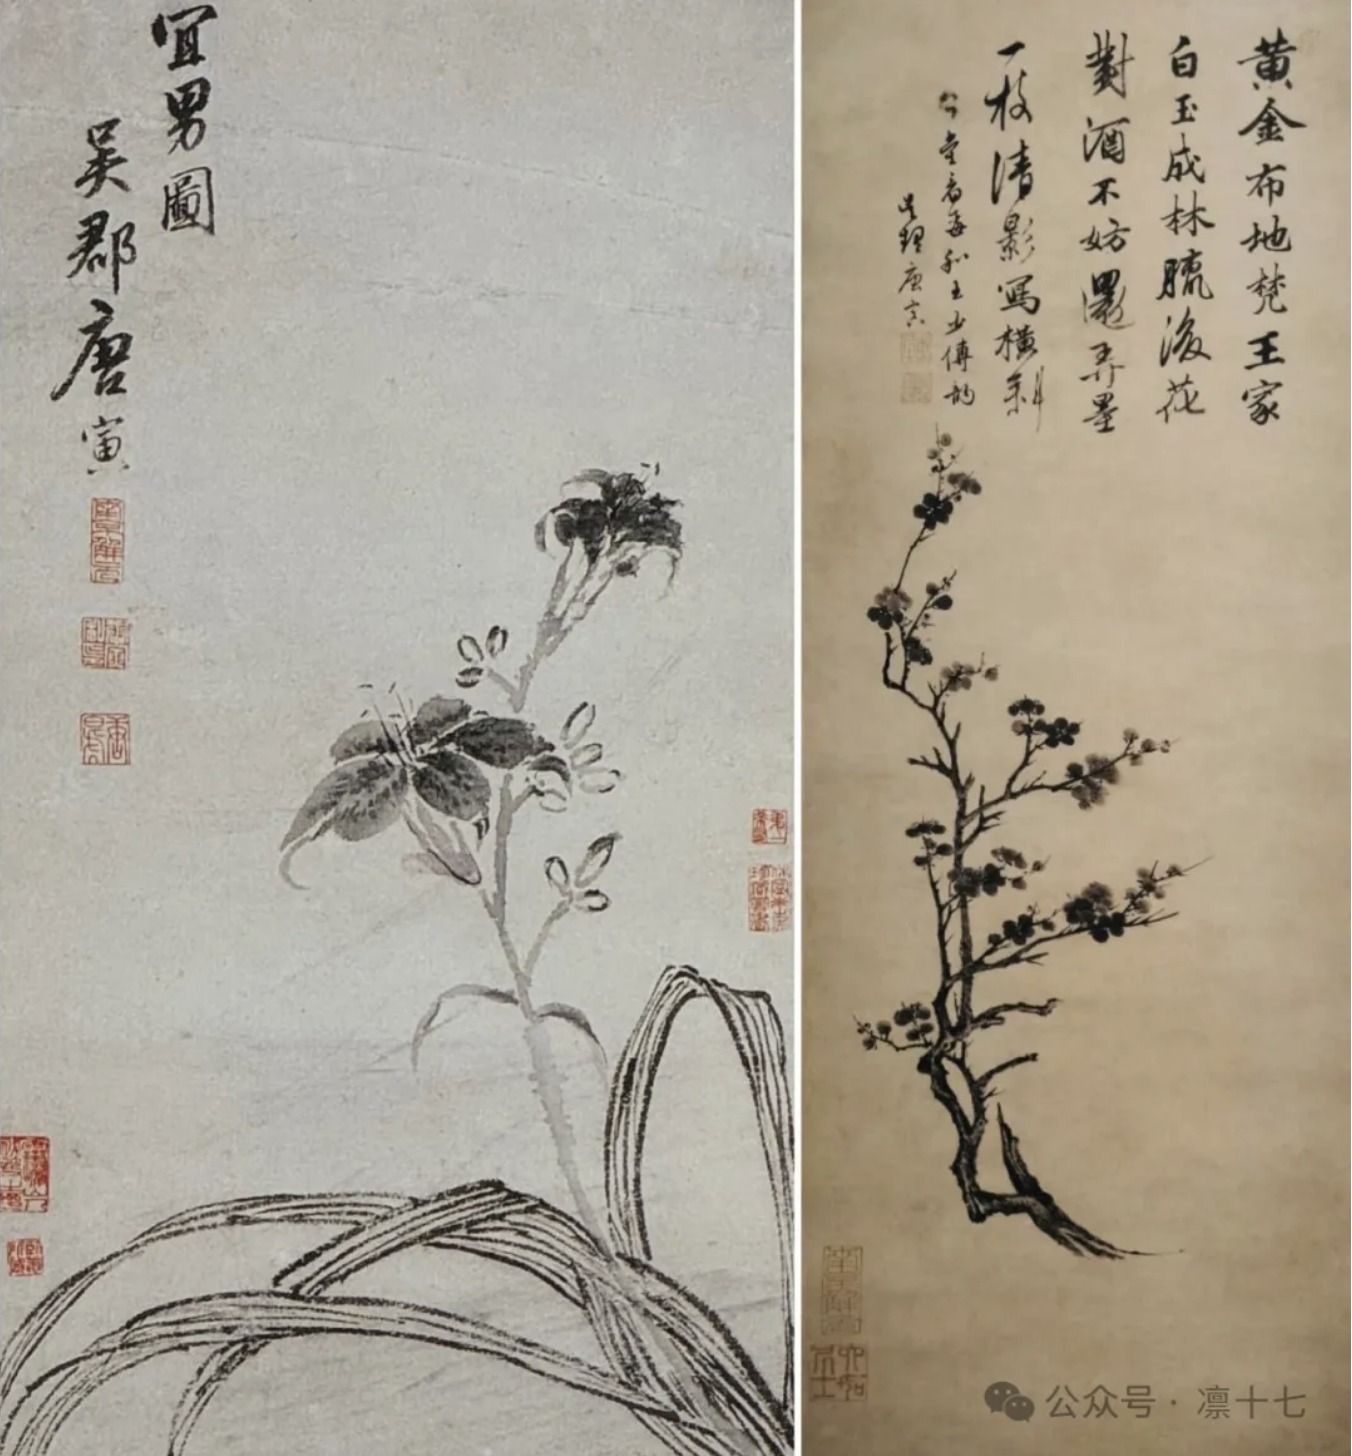 宜男圖
吳郡唐寅
黃金布地梵王家
白玉成林臘後花
對酒不妨還弄墨
一枝清影寫橫斜
公堂看梅和王少傅韵
吳趨唐寅
公众号 · 凛十七